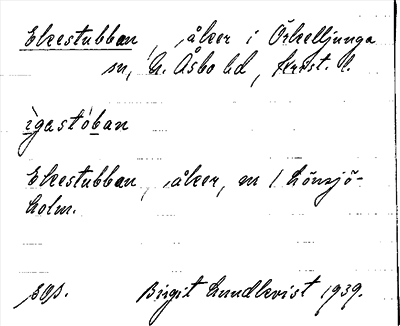 Ekestubban, åker i Örkelljunga
sn, N. Åsbo hd, Krist. l.
ìgastòban
Ekestubban, åker, nr 1 Lönsjö-
holm.
Birgit Lundkvist 1939.